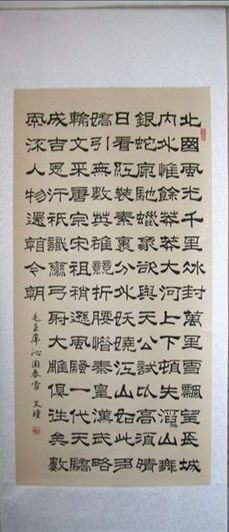 北國風光千里冰封萬里雪飄望長城
內外惟餘莽莽大河上下頓失滔滔山舞
銀蛇原馳蠟象欲與天公試比高須晴
日看紅裝素裹分外妖嬈江山如此多
嬌引無數英雄競折腰惜秦皇漢武略
輸文采唐宗宋祖稍遜風騷一代天驕
成吉思汗祇識彎弓射大雕俱往矣數
風流人物還看今朝
毛主席沁園春雪